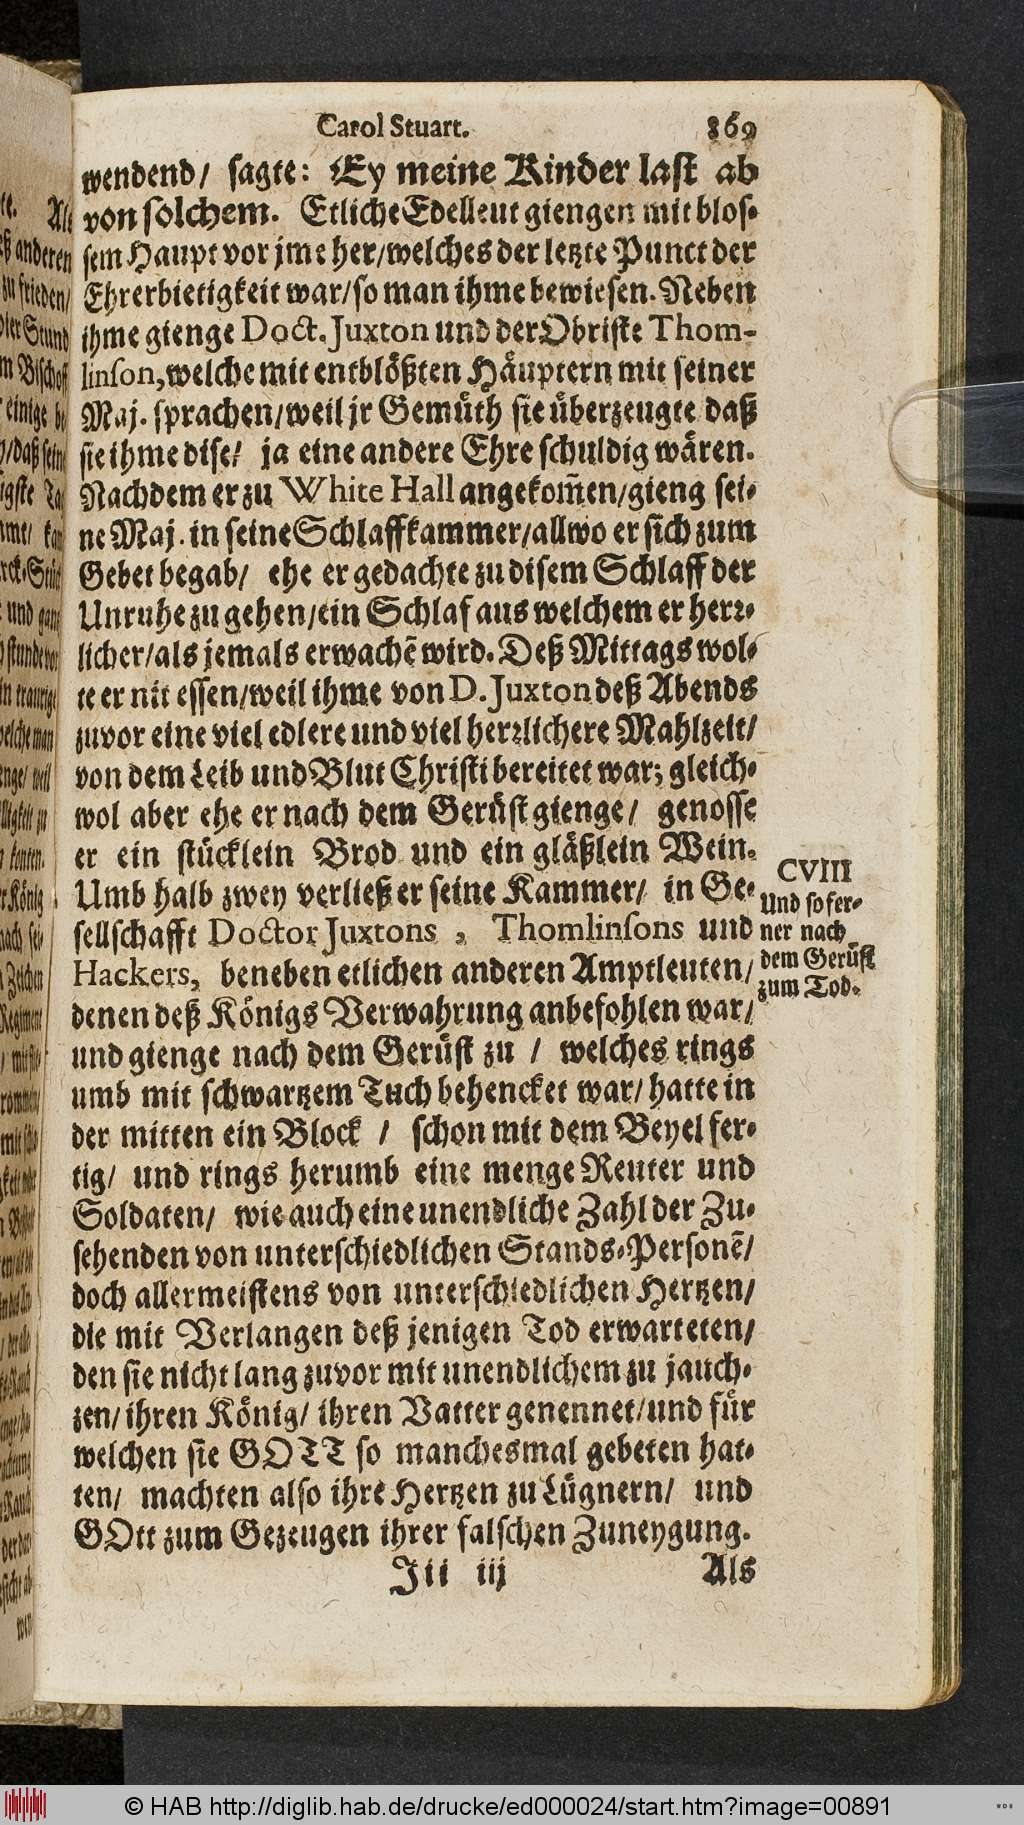 Carol Stuart. 869
wendend/ sagte: Ey meine Kinder last ab
von solchem. Etliche Edelleut giengen mit blos-
sem Haupt vor jme her/welches der letzte Punct der
Ehrerbietigkeit war/so man ihme bewiesen. Neben
ihme gienge Doct. Juxton und der Obriste Thom-
linson, welche mit entblößten Häuptern mit seiner
Maj. sprachen/weil jr Gemüth sie überzeugte daß
sie ihme dise/ ja eine andere Ehre schuldig wären.
Nachdem er zu White Hall angekom̃en/gieng sei-
ne Maj. in seine Schlaffkammer/allwo er sich zum
Gebet begab/ ehe er gedachte zu disem Schlaff der
Unruhe zu gehen/ein Schlaf aus welchem er herr-
licher/als jemals erwachẽ wird. Deß Mittags wol-
te er nit essen/weil ihme von D. Juxton deß Abends
zuvor eine viel edlere und viel herrlichere Mahlzeit/
von dem Leib und Blut Christi bereitet war; gleich-
wol aber ehe er nach dem Gerüst gienge/ genosse
er ein stücklein Brod und ein gläßlein Wein.
Umb halb zwey verließ er seine Kammer/ in Ge-
sellschafft Doctor Juxtons, Thomlinsons und
Hackers, beneben etlichen anderen Amptleuten/
denen deß Königs Verwahrung anbefohlen war/
und gienge nach dem Gerüst zu / welches rings
umb mit schwartzem Tuch behencket war/ hatte in
der mitten ein Block / schon mit dem Beyel fer-
tig/ und rings herumb eine menge Reuter und
Soldaten/ wie auch eine unendliche Zahl der Zu-
sehenden von unterschiedlichen Stands-Personẽ/
doch allermeistens von unterschiedlichen Hertzen/
die mit Verlangen deß jenigen Tod erwarteten/
den sie nicht lang zuvor mit unendlichem zu jauch-
zen/ ihren König/ ihren Vatter genennet/und für
welchen sie GOTT so manchesmal gebeten hat-
ten/ machten also ihre Hertzen zu Lügnern/ und
GOtt zum Gezeugen ihrer falschen Zuneygung.
Jii iij Als
CVIII
Und so fer-
ner nach
dem Gerüst
zum Tod.
© HAB http://diglib.hab.de/drucke/ed000024/start.htm?image=00891